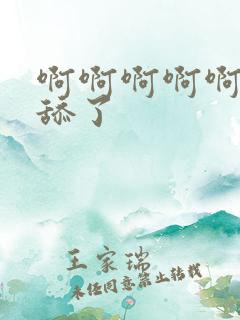 啊啊啊啊啊
舔了
王家瑞
未经同意禁止转载